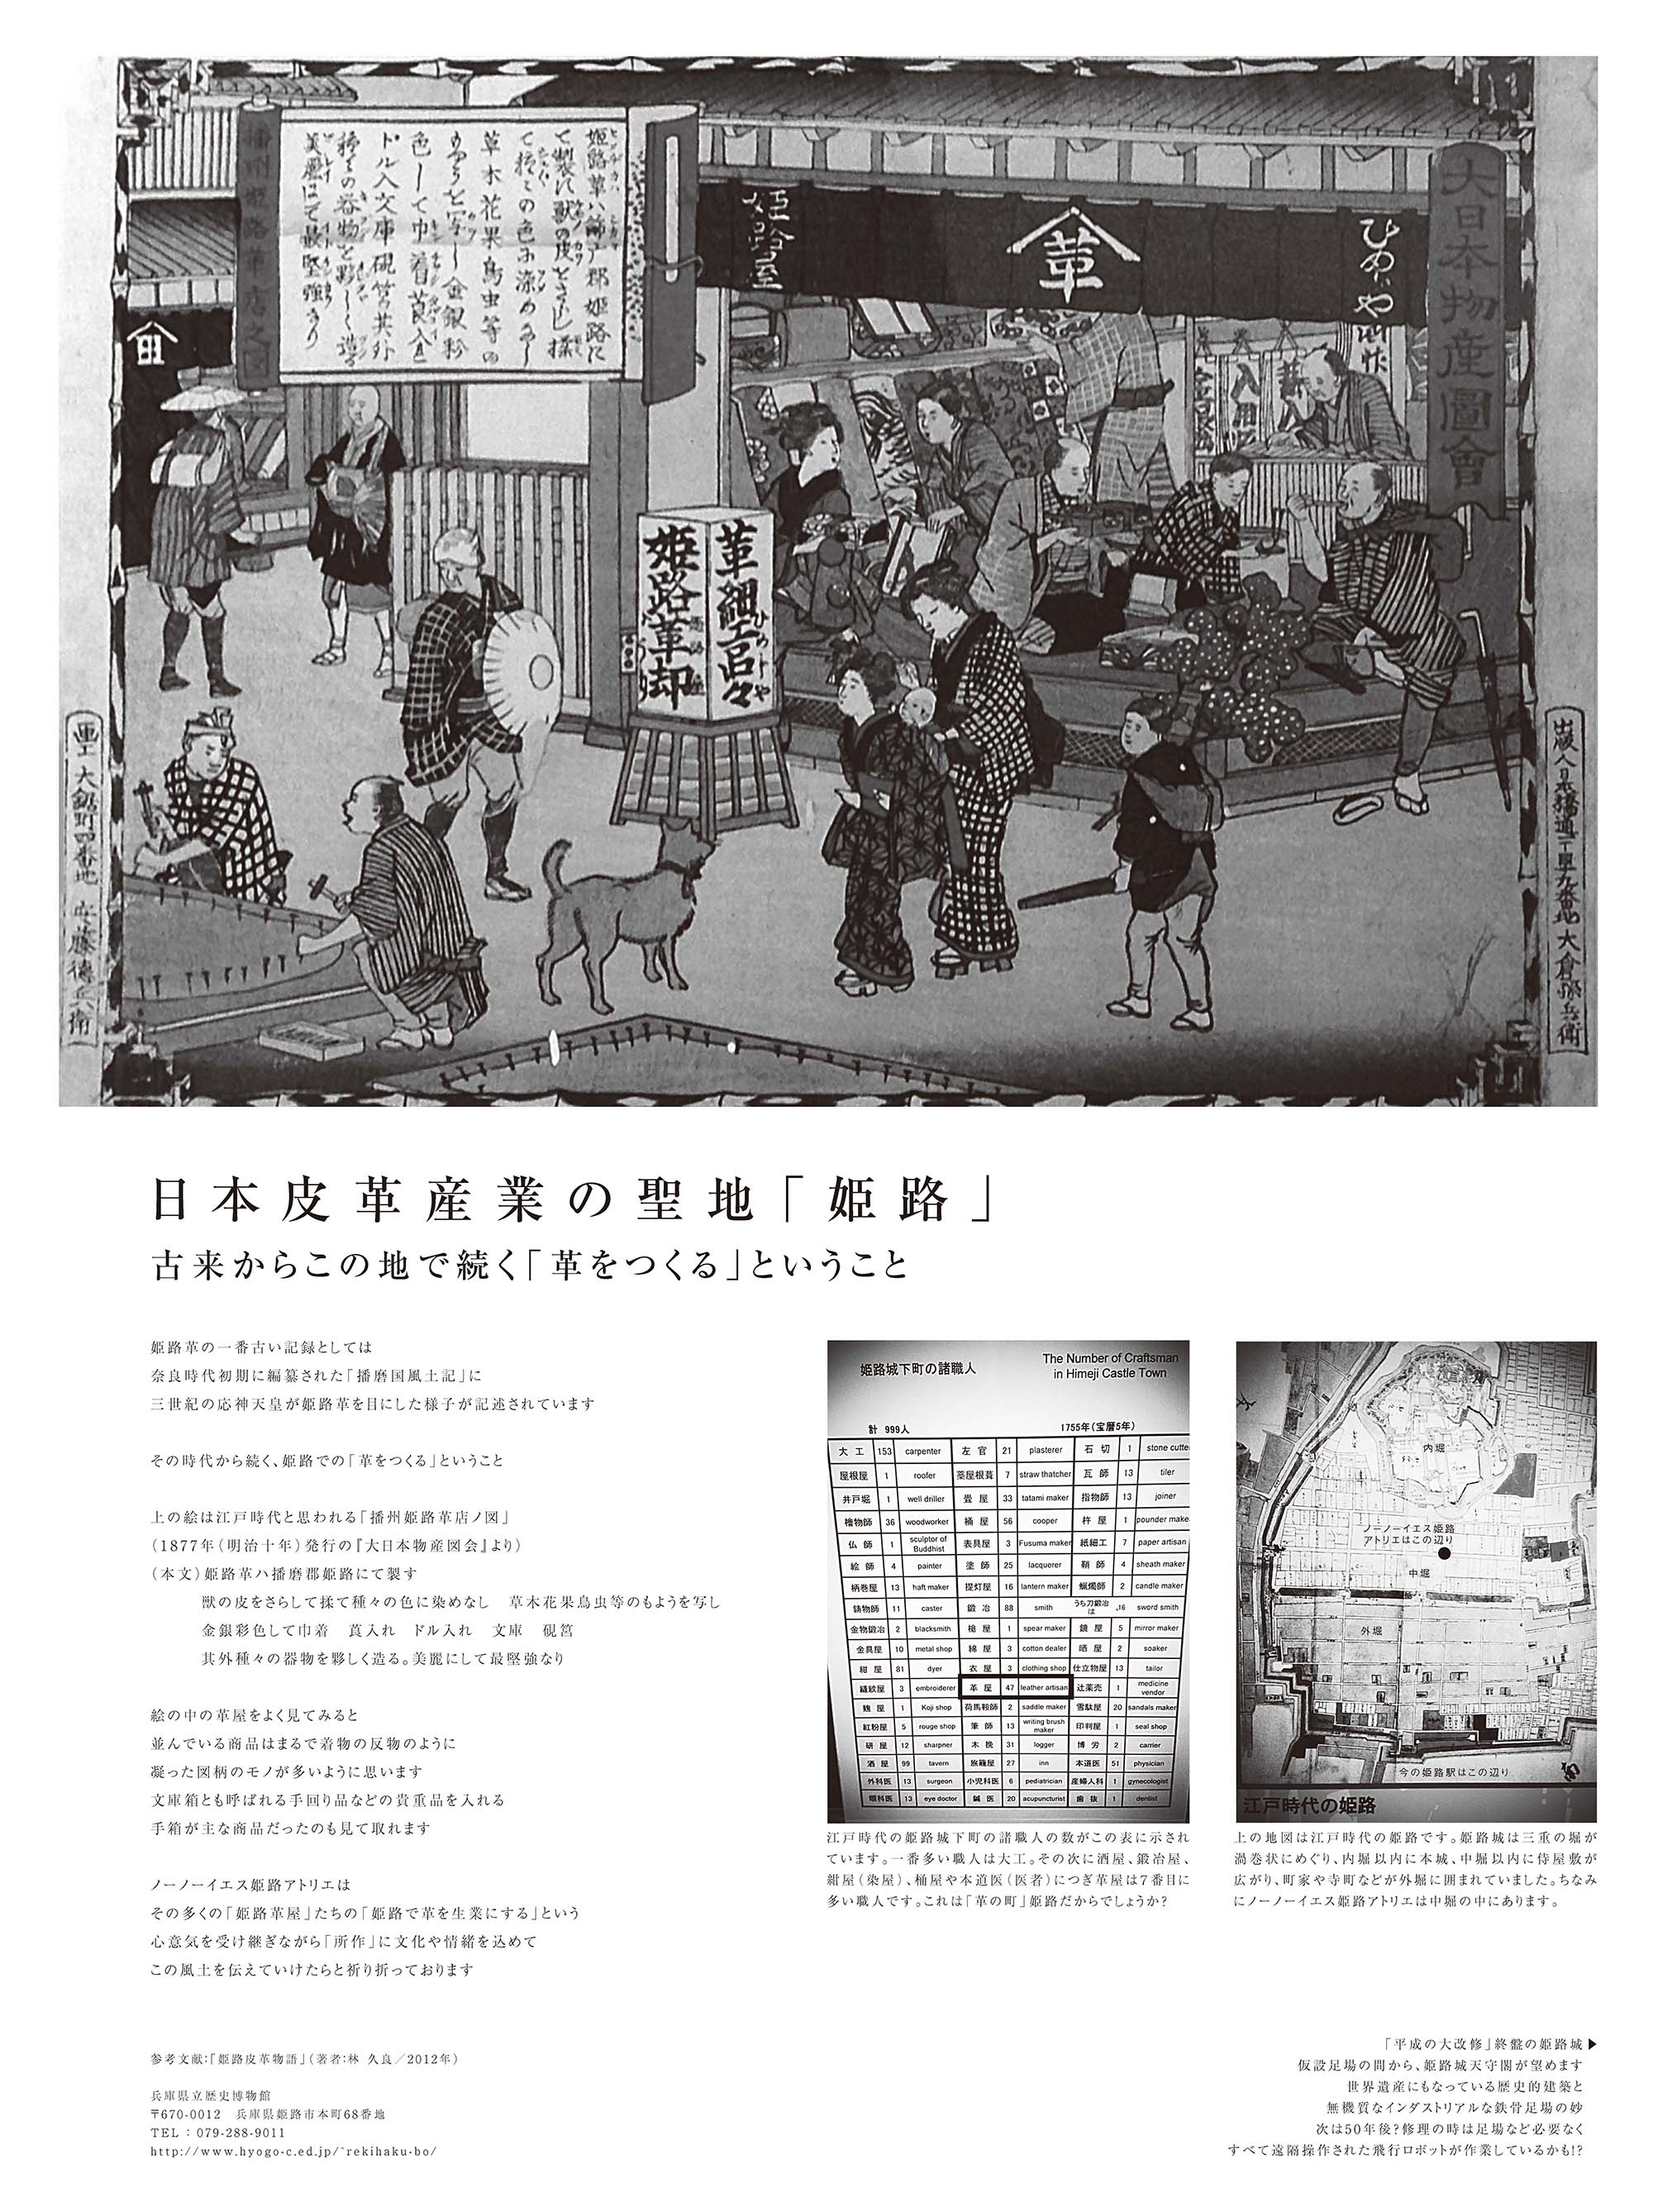 大日本物産圖會
ひめぢや
革
姫路屋
播州姫路革店之図
姫路革ハ飾磨郡姫路に
て製に獣の皮をさらし揉
て種々の色に染めなし
草木花果鳥虫等の
もやうを写し金銀粉
色して巾着莨入
ドル入文庫硯筥其外
種々の器物を夥しく造る
美麗にて最堅強なり
革細工品々
姫路革卸
ひめじや
出版人日本橋通一丁目十九番地大倉孫兵衛
画工 大鋸町四番地 安藤徳兵衛
日本皮革産業の聖地「姫路」
古来からこの地で続く「革をつくる」ということ
姫路革の一番古い記録としては
奈良時代初期に編纂された「播磨国風土記」に
三世紀の応神天皇が姫路革を目にした様子が記述されています
その時代から続く、姫路での「革をつくる」ということ
上の絵は江戸時代と思われる「播州姫路革店ノ図」
(1877年(明治十年)発行の『大日本物産図会』より)
(本文)姫路革ハ播磨郡姫路にて製す
獣の皮をさらして揉て種々の色に染めなし 草木花果鳥虫等のもようを写し
金銀彩色して巾着 莨入れ ドル入れ 文庫 硯筥
其外種々の器物を夥しく造る。美麗にして最堅強なり
絵の中の革屋をよく見てみると
並んでいる商品はまるで着物の反物のように
凝った図柄のモノが多いように思います
文庫箱とも呼ばれる手回り品などの貴重品を入れる
手箱が主な商品だったのも見て取れます
ノーノーイエス姫路アトリエは
その多くの「姫路革屋」たちの「姫路で革を生業にする」という
心意気を受け継ぎながら「所作」に文化や情緒を込めて
この風土を伝えていけたらと祈り折っております
参考文献:「姫路皮革物語」(著者:林 久良/2012年)
兵庫県立歴史博物館
〒670-0012 兵庫県姫路市本町68番地
TEL : 079-288-9011
http://www.hyogo-c.ed.jp/~rekihaku-bo/
姫路城下町の諸職人
The Number of Craftsman
in Himeji Castle Town
計 999人 1755年(宝暦5年)
大工 153 carpenter 左官 21 plasterer 石切 1 stone cutte
屋根屋 1 roofer 藁屋根葺 7 straw thatcher 瓦師 13 tiler
井戸堀 1 well driller 畳屋 33 tatami maker 指物師 13 joiner
檜物師 36 woodworker 桶屋 56 cooper 杵屋 1 pounder make
仏師 1 sculptor of Buddhist 表具屋 3 Fusuma maker 紙細工 7 paper artisan
絵師 4 painter 塗師 25 lacquerer 鞘師 4 sheath maker
柄巻屋 13 haft maker 提灯屋 16 lantern maker 蝋燭師 2 candle maker
鋳物師 11 caster 鍛冶 88 smith うち刀鍛冶は 16 sword smith
金物鍛冶 2 blacksmith 槍屋 1 spear maker 鏡屋 5 mirror maker
金具屋 10 metal shop 綿屋 3 cotton dealer 晒屋 2 soaker
紺屋 81 dyer 衣屋 3 clothing shop 仕立物屋 13 tailor
縫紋屋 3 embroiderer 革屋 47 leather artisan 辻薬売 1 medicine vendor
麹屋 1 Koji shop 荷馬鞍師 2 saddle maker 雪駄屋 20 sandals maker
紅粉屋 5 rouge shop 筆師 13 writing brush maker 印判屋 1 seal shop
研屋 12 sharpner 木挽 31 logger 博労 2 carrier
酒屋 99 tavern 旅籠屋 27 inn 本道医 51 physician
外科医 13 surgeon 小児科医 6 pediatrician 産婦人科 1 gynecologist
眼科医 13 eye doctor 鍼医 20 acupuncturist 歯抜 1 dentist
江戸時代の姫路城下町の諸職人の数がこの表に示され
ています。一番多い職人は大工。その次に酒屋、鍛冶屋、
紺屋(染屋)、桶屋や本道医(医者)につぎ革屋は7番目に
多い職人です。これは「革の町」姫路だからでしょうか?
内堀
ノーノーイエス姫路
アトリエはこの辺り
中堀
外堀
今の姫路駅はこの辺り
江戸時代の姫路
上の地図は江戸時代の姫路です。姫路城は三重の堀が
渦巻状にめぐり、内堀以内に本城、中堀以内に侍屋敷が
広がり、町家や寺町などが外堀に囲まれていました。ちなみ
にノーノーイエス姫路アトリエは中堀の中にあります。
「平成の大改修」終盤の姫路城▶
仮設足場の間から、姫路城天守閣が望めます
世界遺産にもなっている歴史的建築と
無機質なインダストリアルな鉄骨足場の妙
次は50年後?修理の時は足場など必要なく
すべて遠隔操作された飛行ロボットが作業しているかも!?